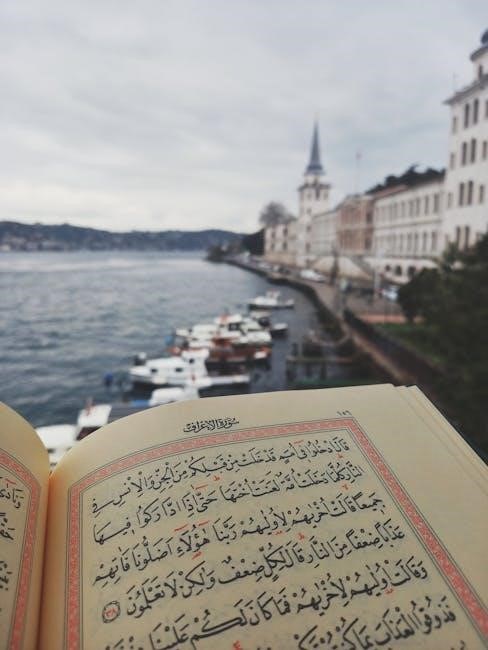 سُورَةُ الأَعْرَافِ ١٥٦
قَالَ ادْخُلُوا فِي أُمَمٍ قَدْ خَلَتْ مِنْ قَبْلِكُمْ مِنَ الْجِنِّ وَالْإِنْسِ فِي
النَّارِ كُلَّمَا دَخَلَتْ أُمَّةٌ لَعَنَتْ أُخْتَهَا حَتَّى إِذَا ادَّارَكُوا فِيهَا
جَمِيعًا قَالَتْ أُخْرَيهُمْ لِأُولَيهُمْ رَبَّنَا هَؤُلَاءِ أَضَلُّونَا فَآتِهِمْ
عَذَابًا ضِعْفًا مِنَ النَّارِ قَالَ لِكُلٍّ ضِعْفٌ وَلَكِنْ لَا تَعْلَمُونَ ٣٨
وَقَالَتْ أُولَيهُمْ لِأُخْرَيهُمْ فَمَا كَانَ لَكُمْ عَلَيْنَا
فَذُوقُوا الْعَذَابَ بِمَا كُنْتُمْ